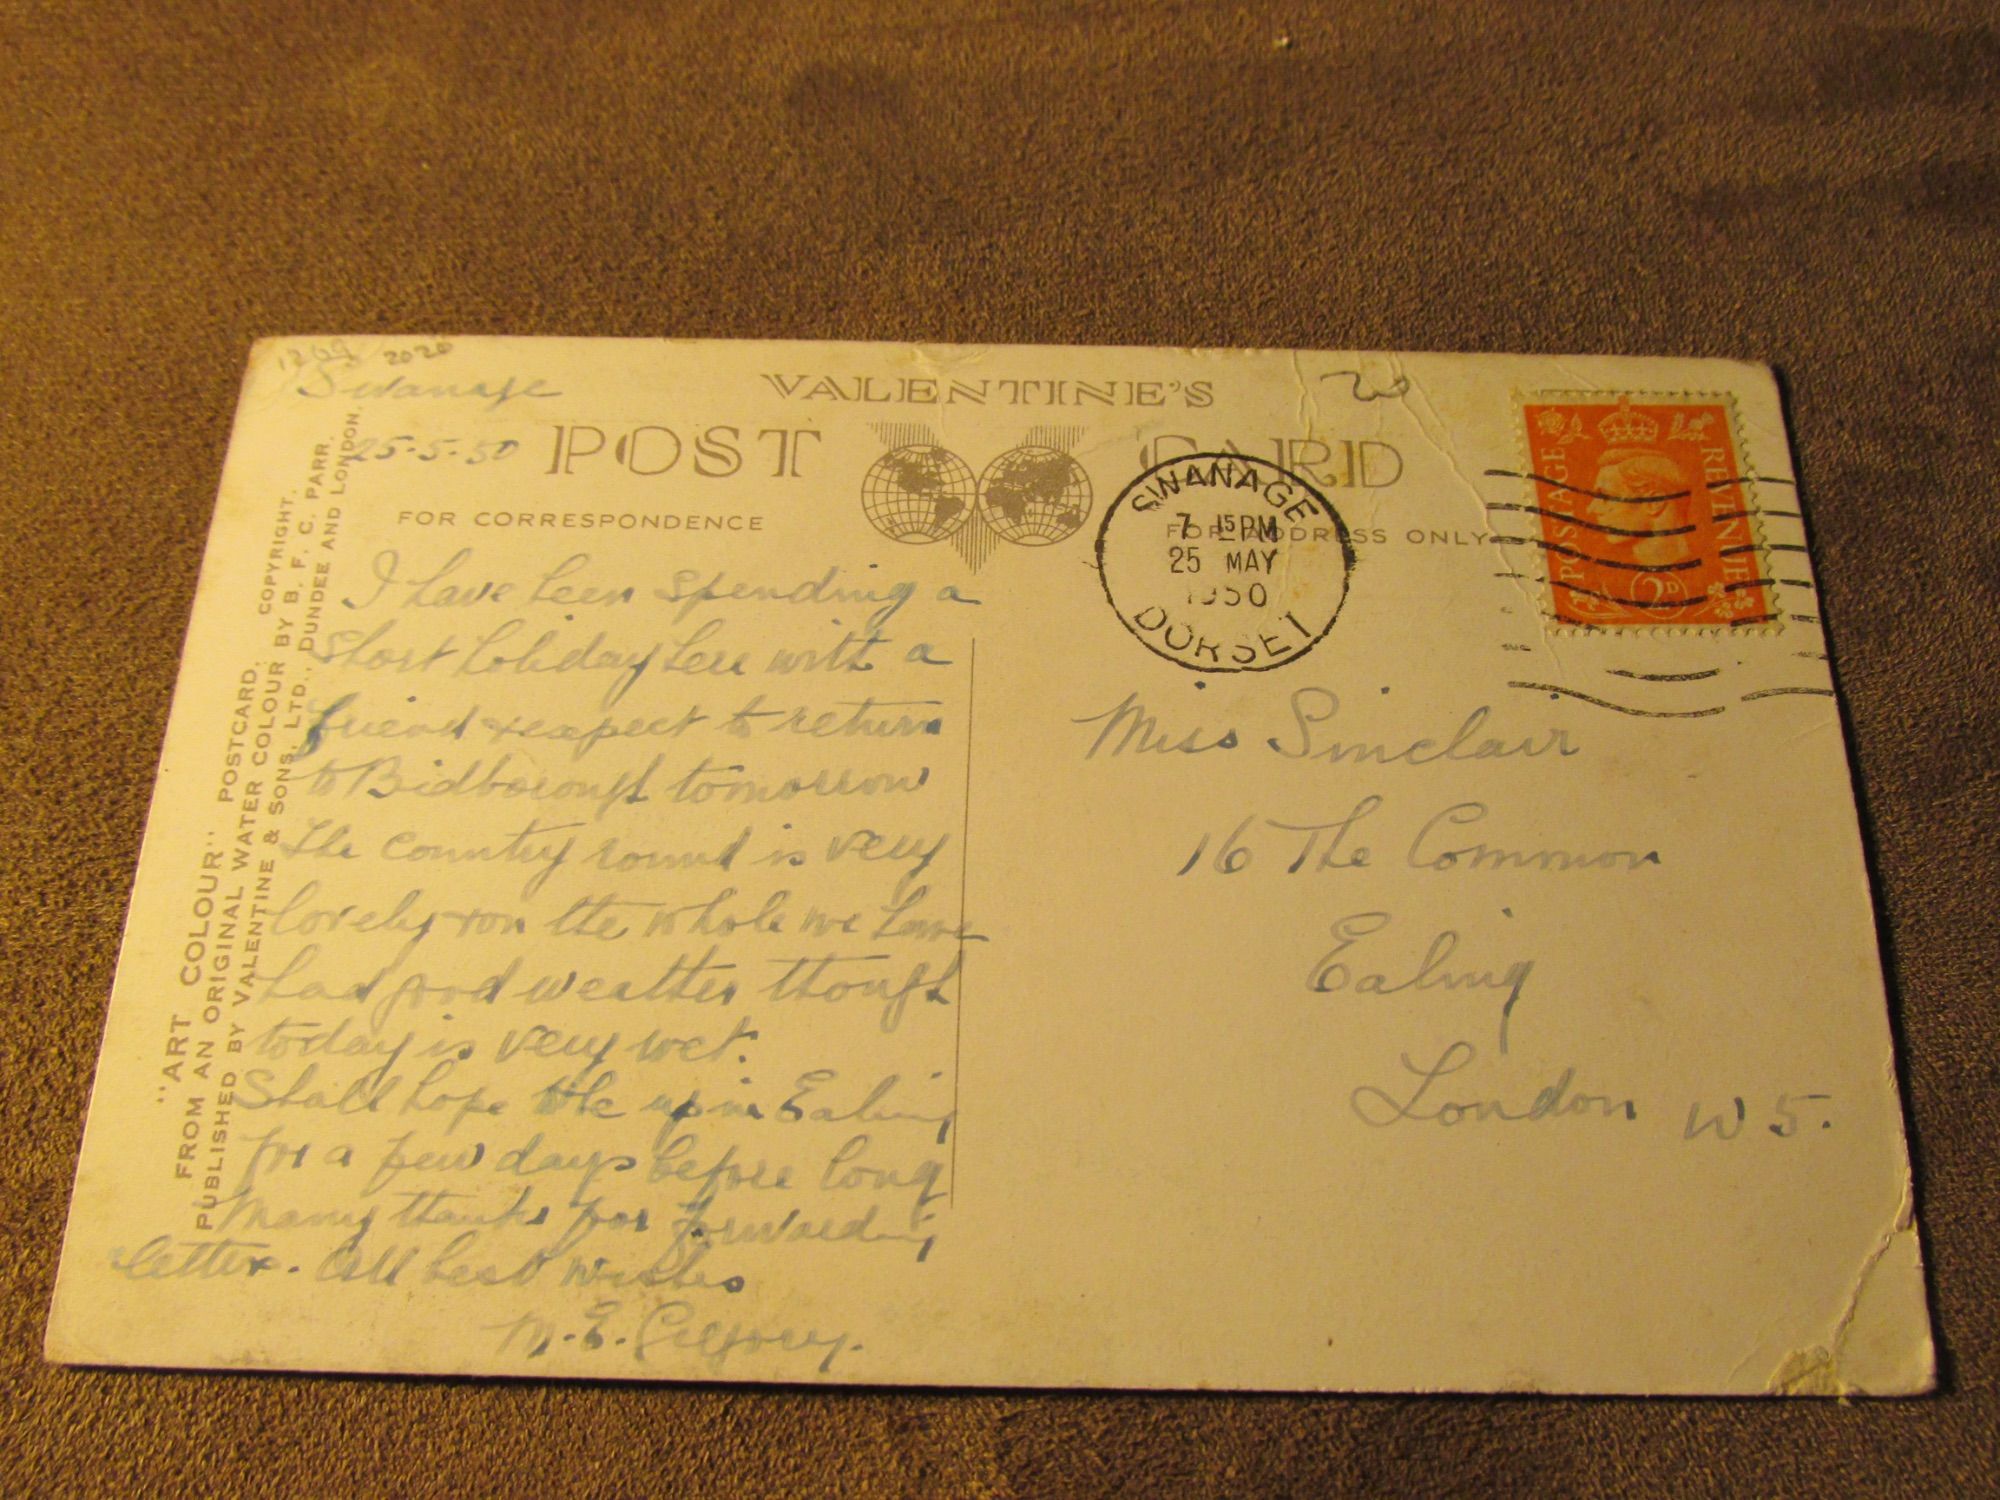 1209 2020
20
Swanage
25-5-50
VALENTINE'S
POST CARD
FOR CORRESPONDENCE
FOR ADDRESS ONLY
I have been spending a
short holiday here with a
friend & expect to return
to Bidborough tomorrow
The country round is very
lovely & on the whole we have
had good weather though
today is very wet.
Shall hope to be up in Ealing
for a few days before long
Many thanks for forwarding
letter. All best wishes
M. E. Gregory.
"ART COLOUR" POSTCARD.
FROM AN ORIGINAL WATER COLOUR BY B. F. C. PARR. COPYRIGHT.
PUBLISHED BY VALENTINE & SONS, LTD., DUNDEE AND LONDON.
SWANAGE
7 15 PM
25 MAY
1950
DORSET
POSTAGE
REVENUE
2D
Miss Sinclair
16 The Common
Ealing
London W 5.